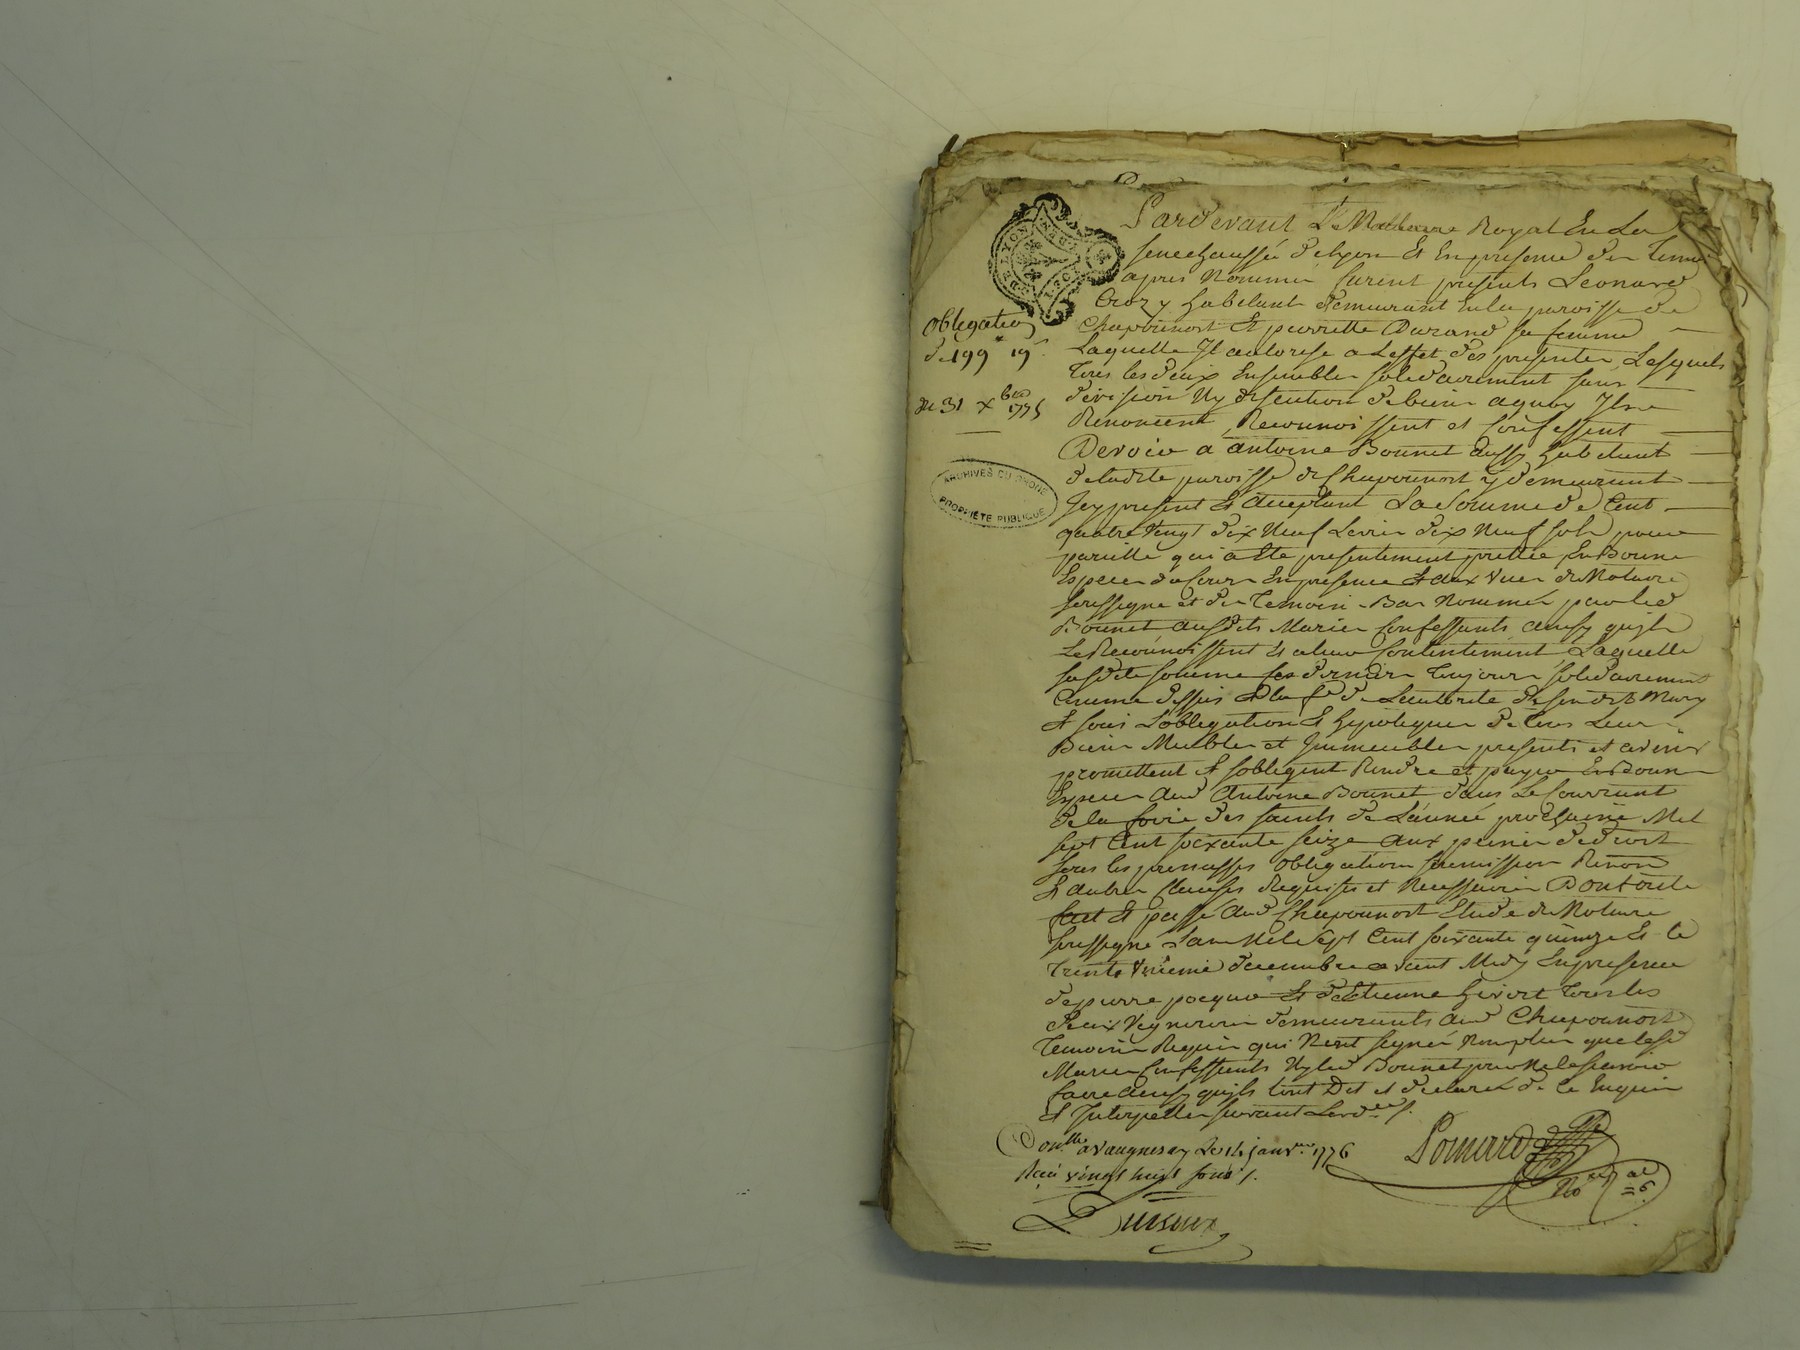 Pardevant Le Nottaire Royal En La
senechaussée de Lyon Et En presence des Temoins
apres Nommés furent presents Leonard
Crozy habitant demeurant En la paroisse de
Chaponnost Et pierrette Durand sa femme
Laquelle Il autorise a Leffet des presentes, Lesquels
Tous les deux Ensembles solidairement sans
division Ny discution de biens aquoy Ils
Renoncent, Reconnoissent et Confessent
Devoir a antoine Bonnet aussy habitant
de ladite paroisse de Chaponnost y demeurant
Icy present Et acceptant La Somme de Cent
quatre Vingt dix Neuf Livres dix Neuf sols pour
pareille qui a Ete presentement prettée En Bonnes
Especes du Cours En presence Et aux vues du Notaire
soussigné et des Temoins Bas Nommés par led
Bonnet ausdits Mariés Confessants ainsy quils
Le Reconnoissent Et a leur Contentement Laquelle
susdite somme ces derniers Toujours solidairement
Comme dessus Et la fe de Lautorité de son dit Mary
Et sous Lobligation Et hypoteque de Tous Leurs
Biens Meubles et Immeubles presents et avenir
promettent Et sobligent Rendre et payer En Bonnes
Especes aud Antoine Bonnet dans Le Courrant
de la foire des saints de Lannée prochaine Mil
sept Cent soixante seize aux peines de droit
sous les promesses obligations soumission Renon
Et autres Clauses Requises et Necessaires Dont acte
fait Et passé aud Chaponnost Etude du Notaire
soussigné Lan Mil Sept Cent soixante quinze Et le
Trente Unieme decembre avant Midy En presence
de pierre et d'Etienne Tous les
deux Vignerons demeurants aud Chaponnost
Temoins Requis qui Nont signé Non plus que lesd
Mariés Confessants Ny led Bonnet pour Ne le scavoir
faire ainsy quils Lont Dit et declaré de ce Enquis
Et Interpellés suivant Lordce /.
Obligation
de 199# 19s
du 31 Xbre 1775
ARCHIVES DU RHONE
PROPRIÉTÉ PUBLIQUE
Conllé a Vaugneray Le 14 janvier 1776
Reçu vingt huit sous /.